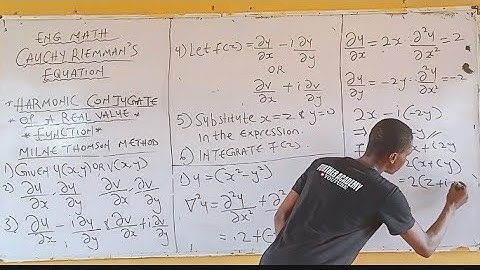 ENG MATH
CAUCHY RIEMMAN'S
EQUATION
*HARMONIC CONJUGATE
* OF A REAL VALUE *
FUNCTION
MILNE THOMSON METHOD
1) GIVEN U(x,y) OR V(x,y)
2) ∂u/∂x, ∂u/∂y, ∂v/∂x, ∂v/∂y
3) ∂u/∂x - i ∂u/∂y & ∂v/∂x + i ∂v/∂y
4) Let f(z) = ∂u/∂x - i ∂u/∂y
OR
∂v/∂x + i ∂v/∂y
5) Substitute x=z & y=0
in the expression.
6) INTEGRATE F(z).
1) U = (x² - y²)
∇²u = ∂²u/∂x² + ∂²
= 2 + (-
∂u/∂x = 2x · ∂²u/∂x² = 2
∂u/∂y = -2y · ∂²u/∂y² = -2
2x - i(-2y)
+ i2y
2(x + iy)
= 2(z + i
FURTHER ACADEMY